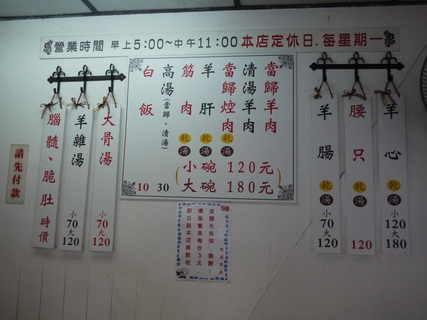 營業時間 早上5:00~中午11:00 本店定休日.每星期一
當歸羊肉
清湯羊肉
當歸焢肉 乾 湯
羊肝 乾 湯
筋肉 乾 湯
(小碗 120元
大碗 180元)
高湯(當歸、清湯) 30
白飯 10
羊心 乾 湯 小120 大180
腰只 乾 湯 120
羊腸 乾 湯 小70 大120
大骨湯 小70 大120
羊雜湯 小70 大120
腦髓、脆肚 時價
請先付款